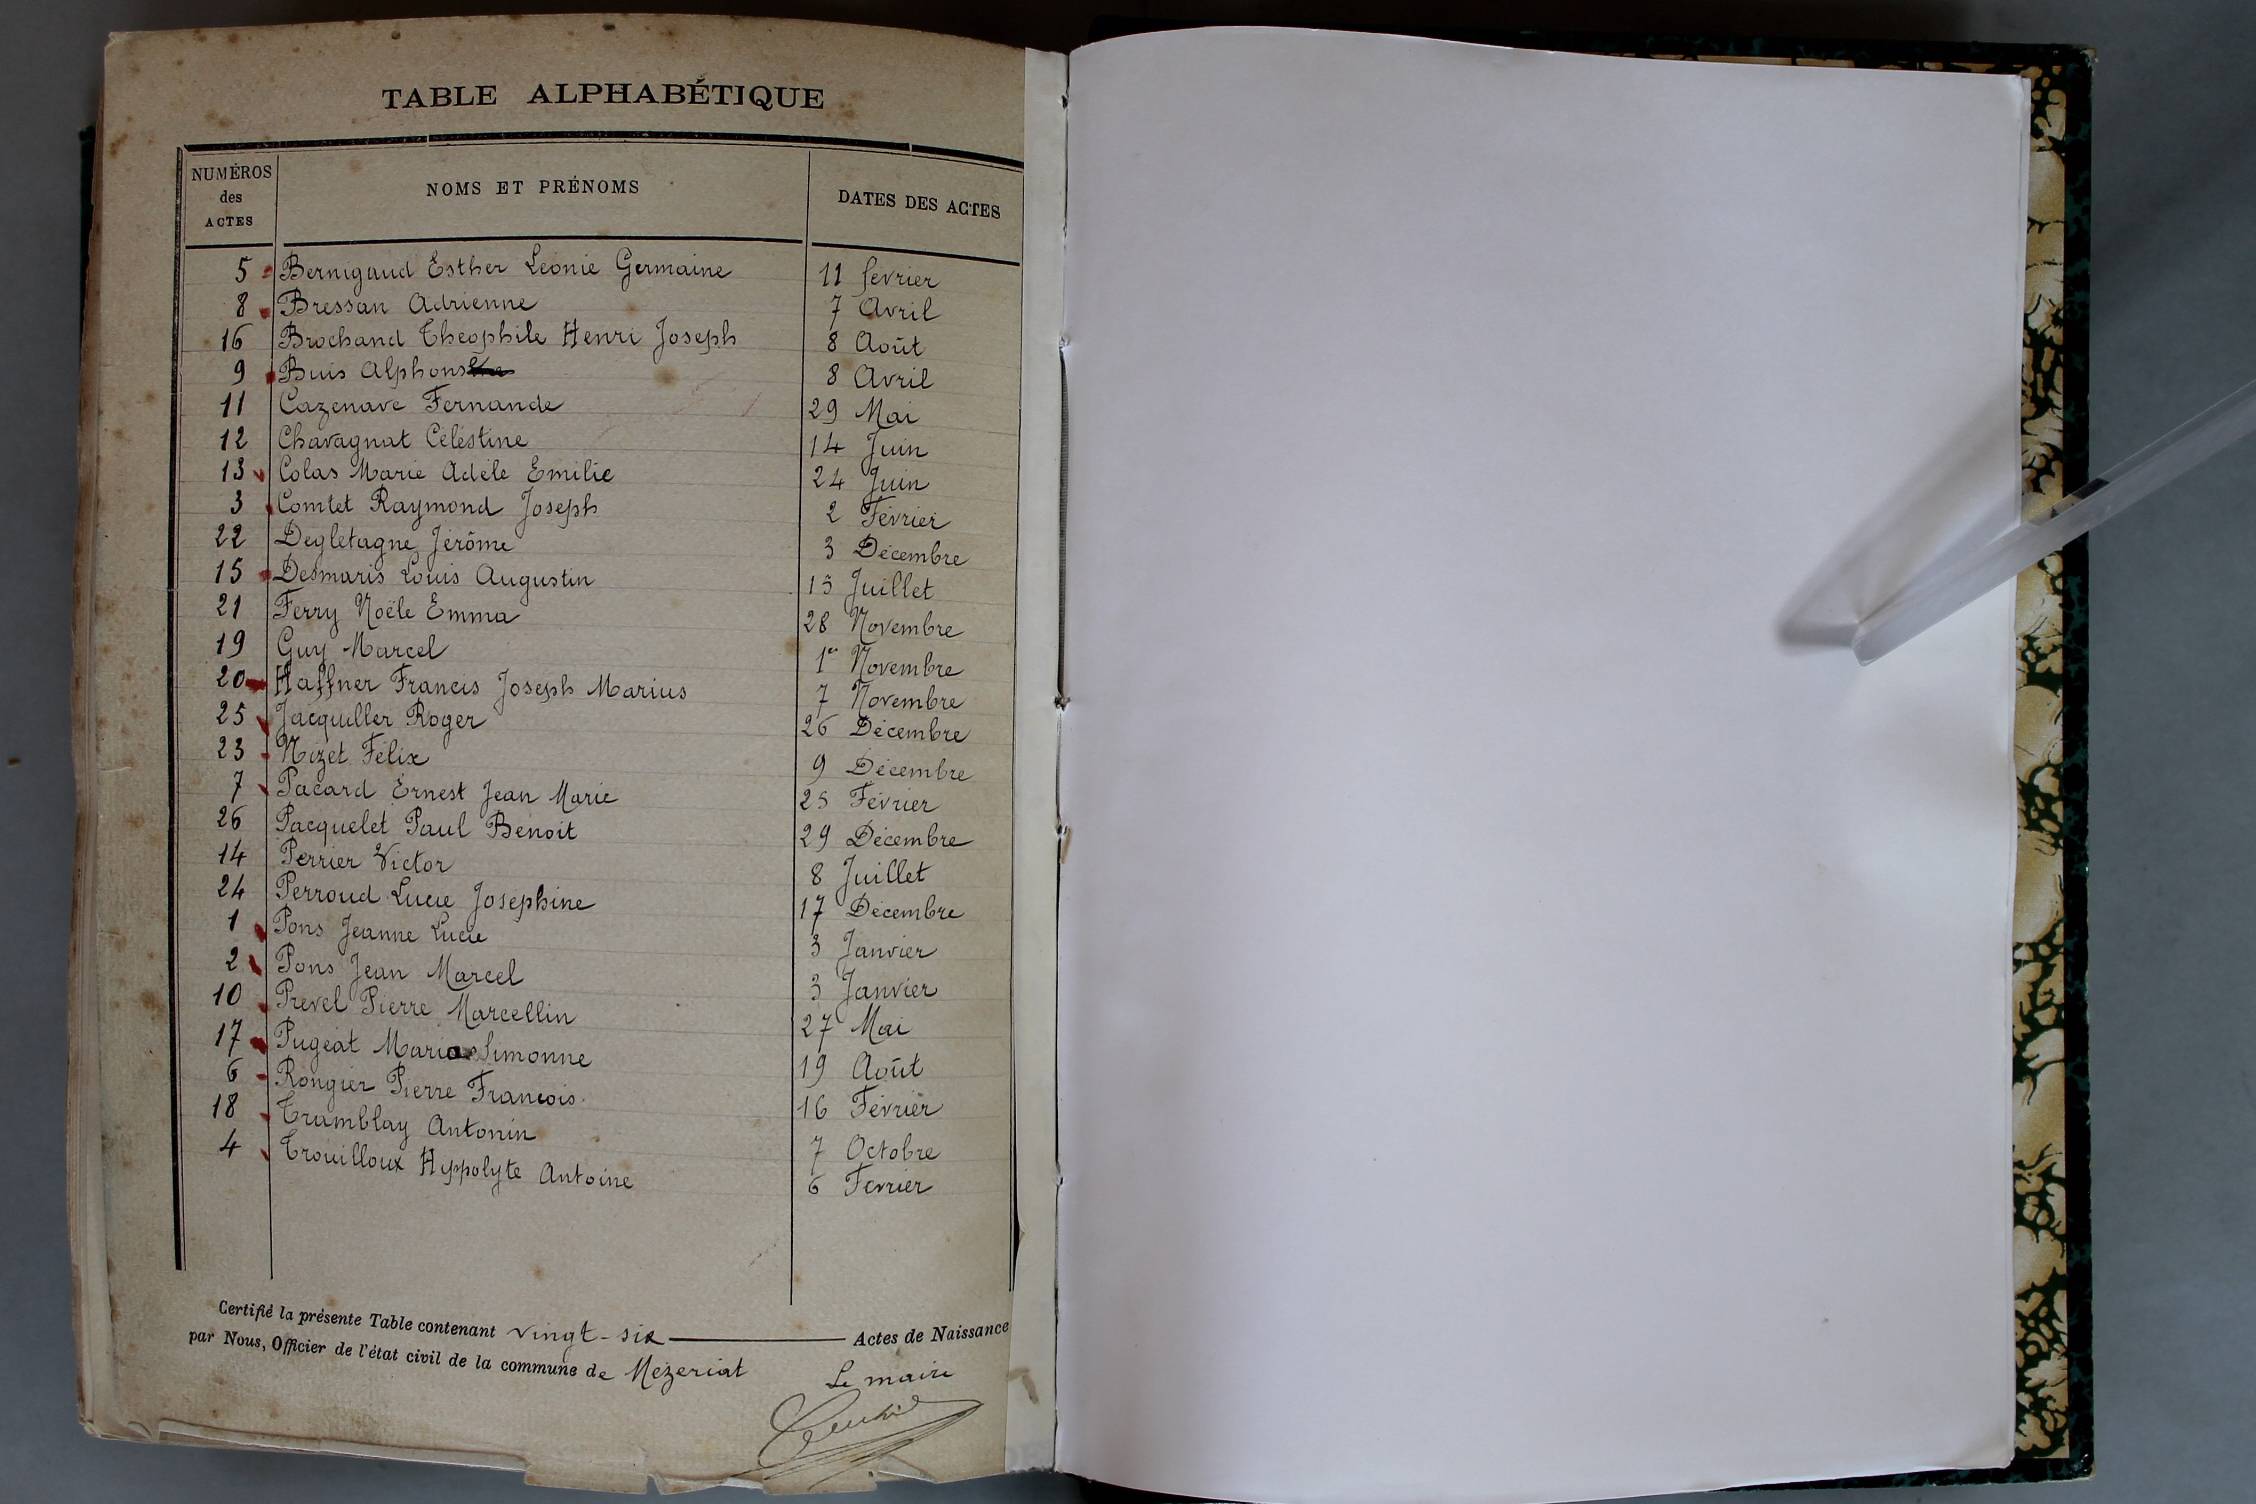 TABLE ALPHABÉTIQUE
NUMÉROS des ACTES NOMS ET PRÉNOMS DATES DES ACTES
5 Bernigaud Esther Léonie Germaine 11 fevrier
8 Bressan Adrienne 7 Avril
16 Brochand Théophile Henri Joseph 8 Août
9 Buis Alphonse 8 Avril
11 Cazenave Fernande 29 Mai
12 Chavagnat Céléstine 14 Juin
13 Colas Marie Adèle Emilie 24 Juin
3 Comtet Raymond Joseph 2 Février
22 Degletagne Jérôme 3 Décembre
15 Desmaris Louis Augustin 15 Juillet
21 Ferry Noële Emma 28 Novembre
19 Guy Marcel 1er Novembre
20 Haffner Francis Joseph Marius 7 Novembre
25 Jacquiller Roger 26 Décembre
23 Nizet Félix 9 Décembre
7 Pacard Ernest Jean Marie 25 Février
26 Pacquelet Paul Benoit 29 Décembre
14 Perrier Victor 8 Juillet
24 Perroud Lucie Josephine 17 Décembre
1 Pons Jeanne Lucie 3 Janvier
2 Pons Jean Marcel 3 Janvier
10 Prevel Pierre Marcellin 27 Mai
17 Pugeat Maria Simonne 19 Août
6 Rongier Pierre François 16 Février
18 Tramblay Antonin 7 Octobre
4 Trouilloux Hyppolyte Antoine 6 Février
Certifié la présente Table contenant vingt-six Actes de Naissance
par Nous, Officier de l'état civil de la commune de Mézeriat
Le maire